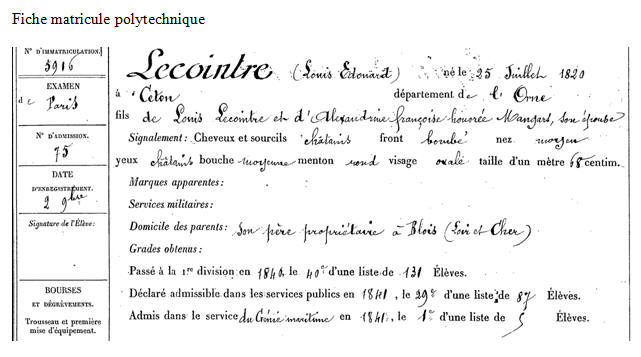 Fiche matricule polytechnique
N° D'IMMATRICULATION.
5916
EXAMEN
de Paris
N° D'ADMISSION.
75
DATE
D'ENREGISTREMENT.
2 9bre
Signature de l'Élève:
BOURSES
ET DÉGRÈVEMENTS.
Trousseau et première
mise d'équipement.
Lecointre (Louis Edouard) né le 25 Juillet 1820
à Céton département de l'Orne
fils de Louis Lecointre et d'Alexandrine françoise honorée Mangars, son épouse
Signalement: Cheveux et sourcils châtains front bombé nez moyen
yeux châtains bouche moyenne menton rond visage ovale taille d'un mètre 68 centim.
Marques apparentes:
Services militaires:
Domicile des parents: son père propriétaire à Blois (Loir et Cher)
Grades obtenus:
Passé à la 1re division en 1840, le 40e d'une liste de 131 Élèves.
Déclaré admissible dans les services publics en 1841, le 29e d'une liste de 87 Élèves.
Admis dans le service du Génie maritime en 1841, le 1er d'une liste de 5 Élèves.